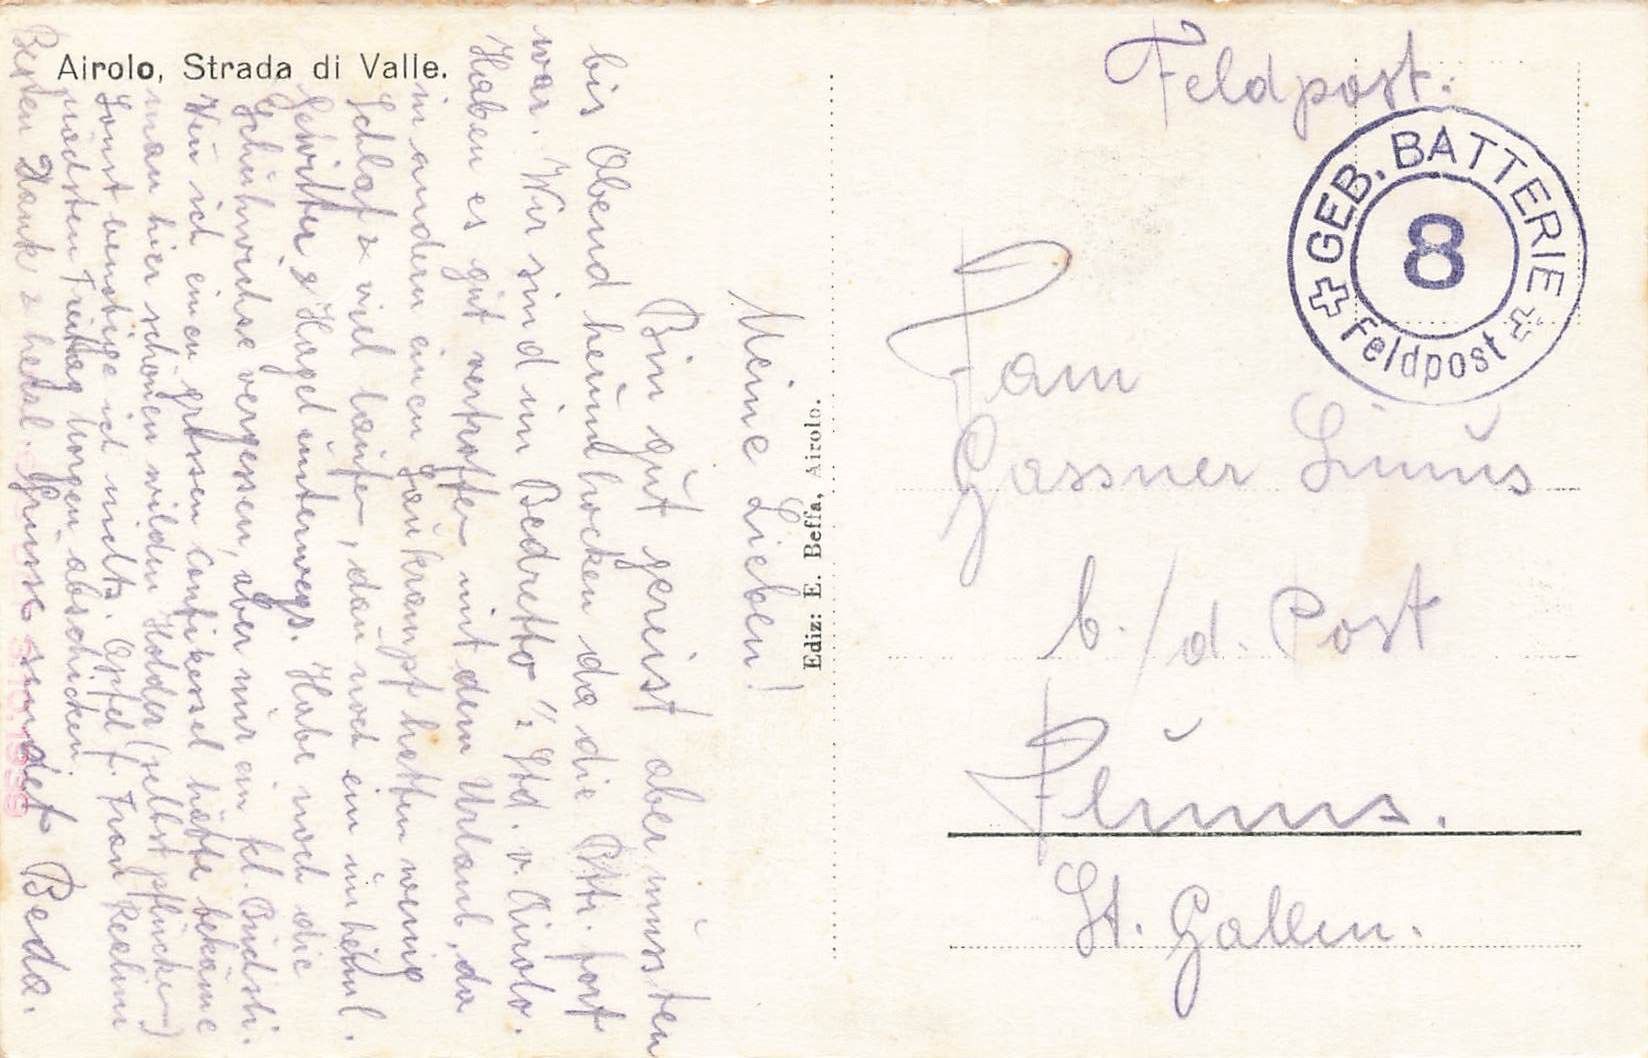 Airolo, Strada di Valle.
Feldpost.
GEB. BATTERIE
8
Feldpost
Fam
Gassner
b./d. Post
Flums.
St. Gallen.
Ediz: E. Beffa, Airolo.
Meine Lieben!
Bin gut gereist aber mussten
bis Abend herumhocken da die Bttr. fort
war. Wir sind im Bedretto 2 Std. v. Airolo.
Haben es gut vertroffen mit dem Urlaub, da
in andern einen Gaukrampf hatten wenig
Schlaf & viel laufen, dan noch ein
Gewitter & Hagel unterwegs. Habe noch die
Schuhwichse vergessen, aber nur ein kl. Büchsli.
Wen ich einen grossen Confikessel hätte bekäme
man hier schönen wilden Holder (selbst pflücken)
Sonst benötige ich nichts. Apfel f. Frau
nächsten Freitag Morgen abschicken.
Besten Dank & herzl. Grüsse sendet Beda.
1939